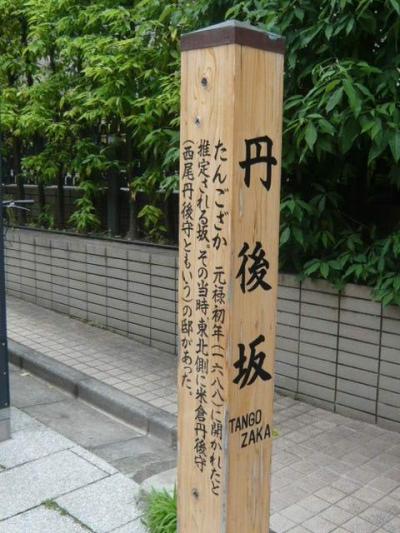 丹後坂
TANGO
ZAKA
たんござか　元禄初年(一六八八)に開かれたと
推定される坂。その当時、東北側に米倉丹後守
(西尾丹後守ともいう)の邸があった。